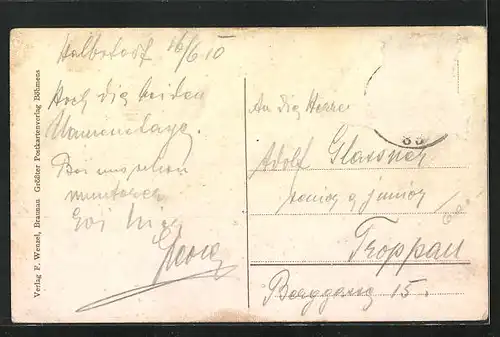 Halbstadt 16/6 10
Hoch die beiden
Namenstage.
Bei uns schon
munterer
Georg
An die Herren
Adolf Glassner
senior & junior
Troppau
Berggasse 15.
33
Verlag F. Wenzel, Braunau Größter Postkartenverlag Böhmens